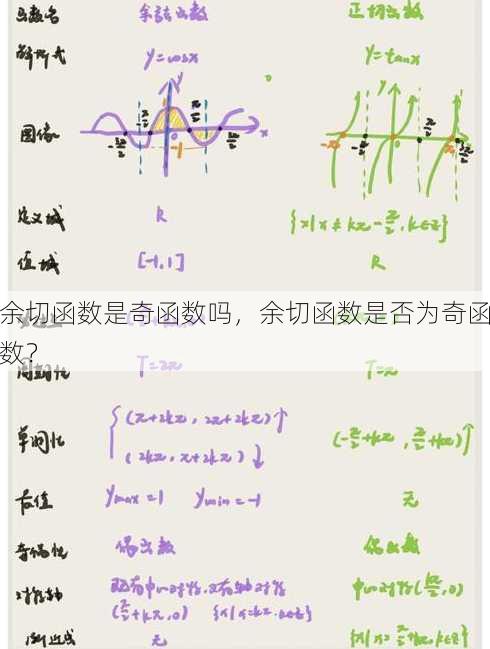 函数名 余弦函数 正切函数
解析式 y=cosx y=tanx
图像
定义域 R {x|x≠kπ-π/2,k∈Z}
值域 [-1,1] R
余切函数是奇函数吗，余切函数是否为奇函
数？
周期性 T=2π T=π
单调性 (π+2kπ, 2π+2kπ)↑ (-π/2+kπ, π/2+kπ)↑
(2kπ, π+2kπ)↓
最值 ymax=1 ymin=-1 无
奇偶性 偶函数
对称轴 既有中心对称,又有轴对称 中心对称(kπ/2,0)
(π/2+kπ,0) {x|x=kπ,k∈Z}
渐近线 无 {x|x=π/2+kπ,k∈Z}